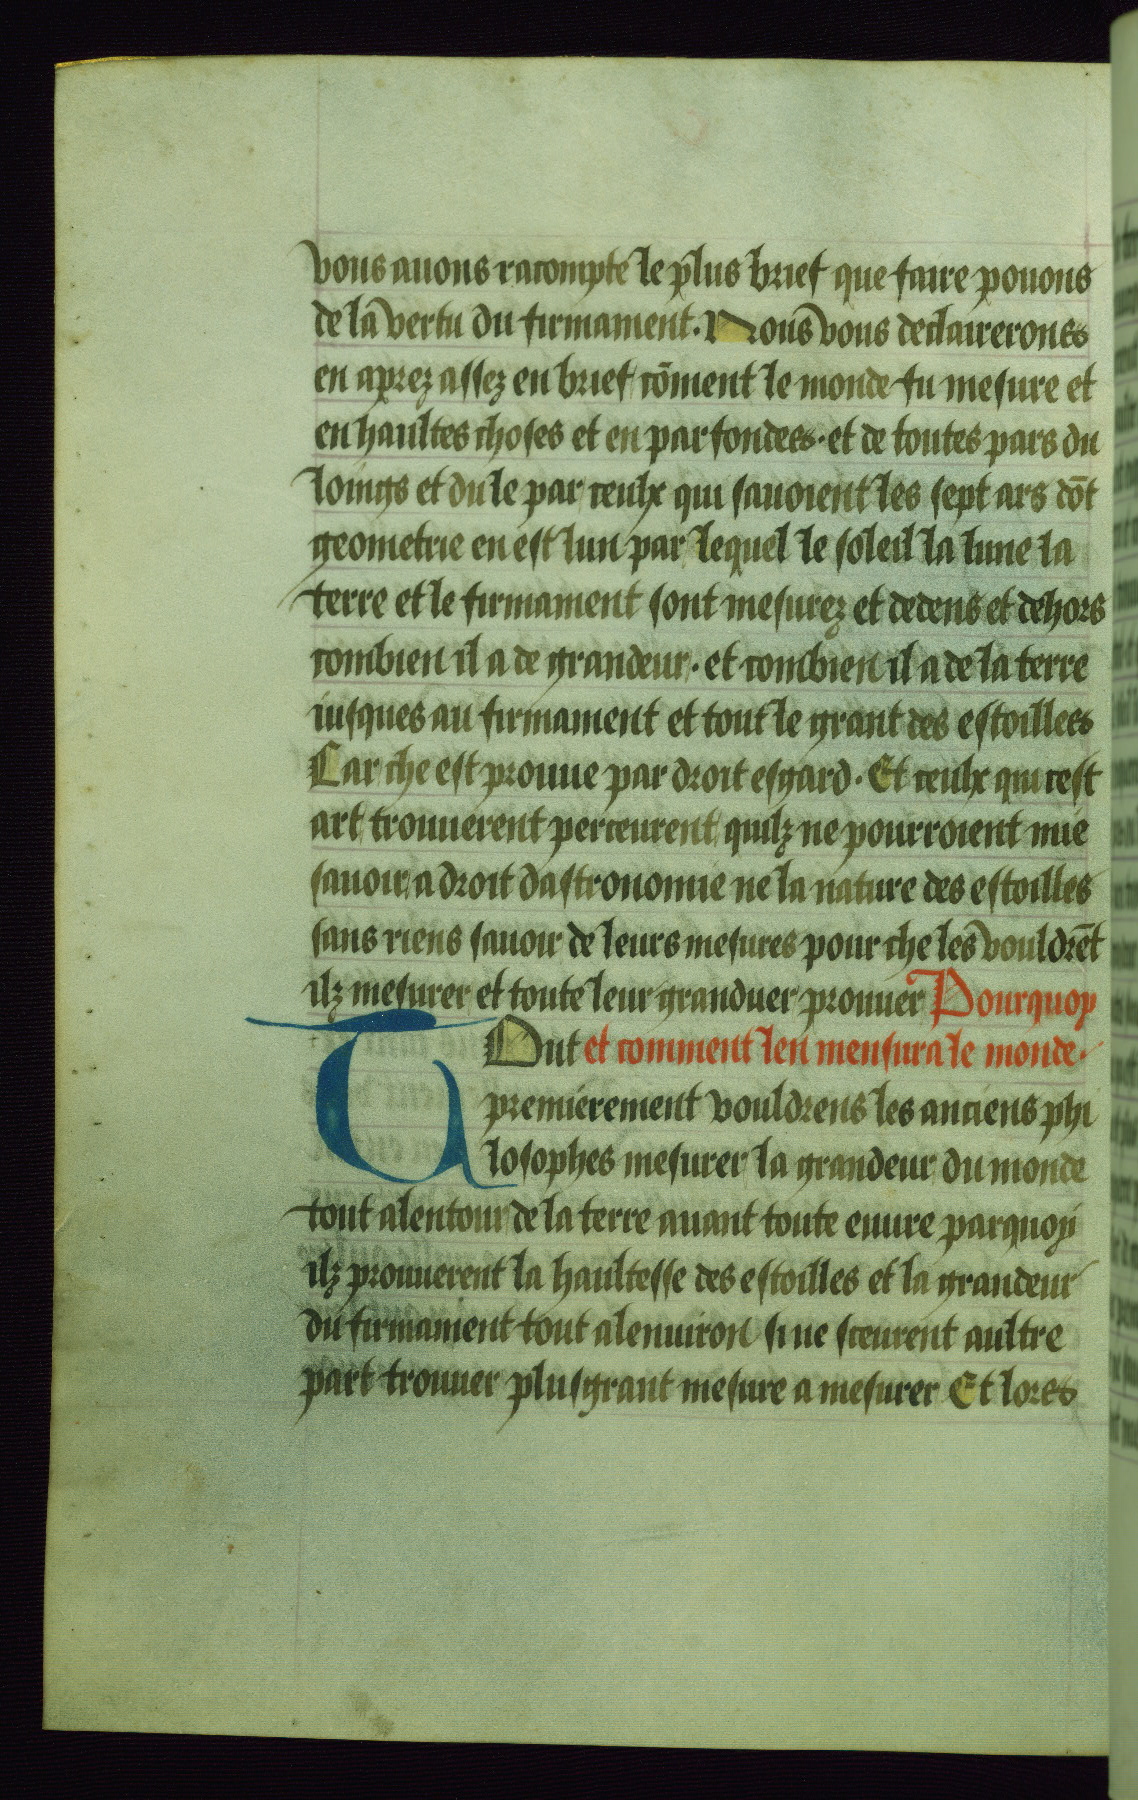 vous auons racompte le plus brief que faire pouons
de la vertu du firmament. Nous vous declairerons
en aprez assez en brief cōment le monde fu mesure et
en haultes choses et en parfondes. et de toutes pars du
loings et du le par ceulx qui sauoient les sept ars dōt
geometrie en est lun par lequel le soleil la lune la
terre et le firmament sont mesurez et dedens et dehors
combien il a de grandeur. et combien il a de la terre
iusques au firmament et tout le grant des estoilles
Car che est prouue par droit esgard. Et ceulx qui cest
art trouuerent perceurent quilz ne pourroient mie
sauoir a droit dastronomie ne la nature des estoilles
sans riens sauoir de leurs mesures pour che les vouldrēt
ilz mesurer et toute leur granduer prouuer Pourquoy
TOut et comment len mensura le monde.
premierement vouldrens les anciens phi
losophes mesurer la grandeur du monde
tout alentour de la terre auant toute euure parquoy
ilz prouuerent la haultesse des estoilles et la grandeur
du firmament tout alenuiron si ne sceurent aultre
part trouuer plus grant mesure a mesurer Et lores